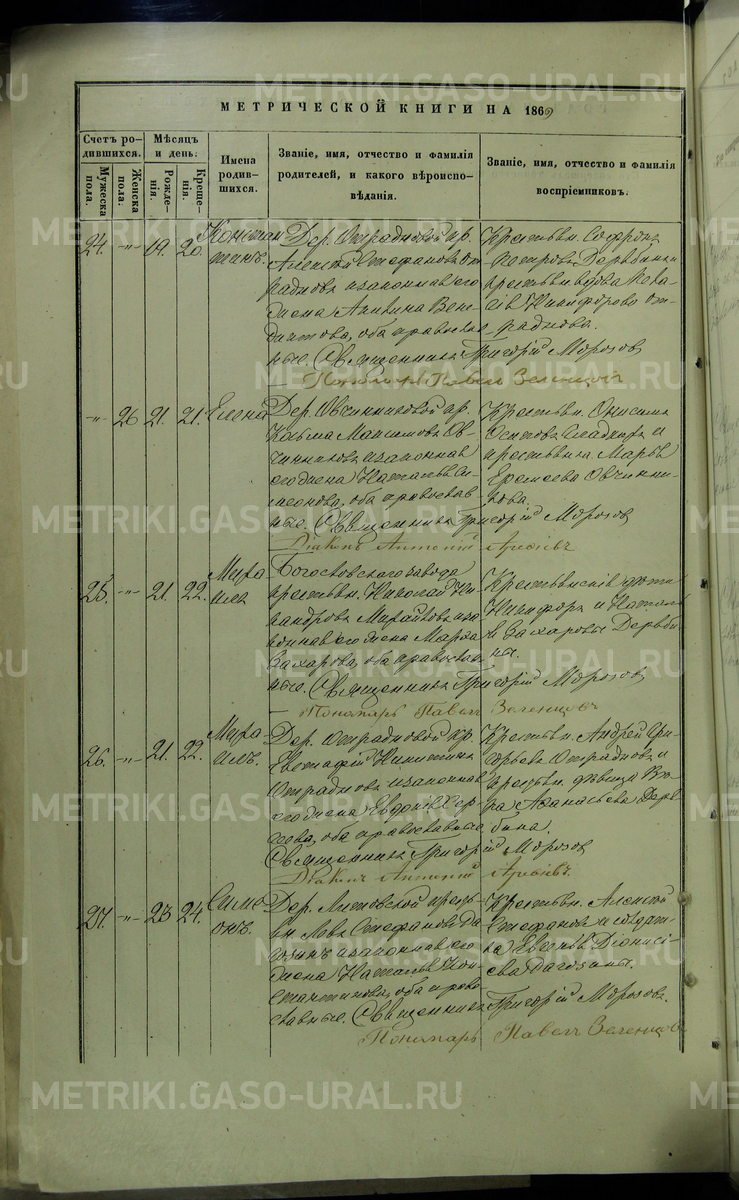 МЕТРИЧЕСКОЙ КНИГИ НА 1869
Счетъ родившихся.
Мѣсяцъ и день.
Имена родившихся.
Званіе, имя, отчество и фамилія родителей, и какого вѣроисповѣданія.
Званіе, имя, отчество и фамилія воспріемниковъ.
Мужеска пола.
Женска пола.
Рожденія.
Крещенія.
24. -"- 19. 20. Константинъ.
Дер. Отрадновой кр.
Алексѣй Стефановъ От
радновъ и законная его
жена Акилина Вене
диктова, оба православ
ные. Священникъ Григорій Морозовъ
Пономарь Павелъ Зеленцовъ
Крестьян. Софронъ
Петровъ Дерябинъ и
крестьян. вдова
Никифорова От
раднова.
-"- 26 21. 21. Елена
Дер. Овчинниковой кр.
Козьма Максимовъ Ов
чинниковъ и законная
его жена Наталья Си
меонова, оба православ
ные. Священникъ Григорій Морозовъ
Діаконъ Антоній
Крестьян. Онисимъ
Осиповъ и
крестьянка Марья
Еремеева Овчинни
кова.
25. -"- 21. 22. Михаилъ
Богословскаго завода
крестьян. Николай Ни
кандровъ Михайловъ и за
конная его жена Марѳа
Захарова, оба православ
ные. Священникъ Григорій Морозовъ
Пономарь Павелъ Зеленцовъ
Крестьянскіе дѣти
Никифоръ и Наталь
я Захаровы Деряби
ны.
26. -"- 21. 22. Михаилъ.
Дер. Отрадновой кр.
Евстафій Никитинъ
Отрадновъ и законная
его жена Евдокія
оба православные
Священникъ Григорій Морозовъ
Діаконъ Антоній
Крестьян. Андрей Гри
горьевъ Отрадновъ и
крестьян. дѣвица Вѣ
ра Аѳанасьева Деря
бина.
27. -"- 23 24. Симеонъ.
Дер. Литовской кресть
ян. Левъ Стефановъ
и законная его
жена Наталья Кон
стантинова, оба право
славные. Священникъ Григорій Морозовъ.
Пономарь Павелъ Зеленцовъ
Крестьян. Алексѣй
Стефановъ и солдат
ка Евгенія Діонисі
ева
METRIKI.GASO-URAL.RU